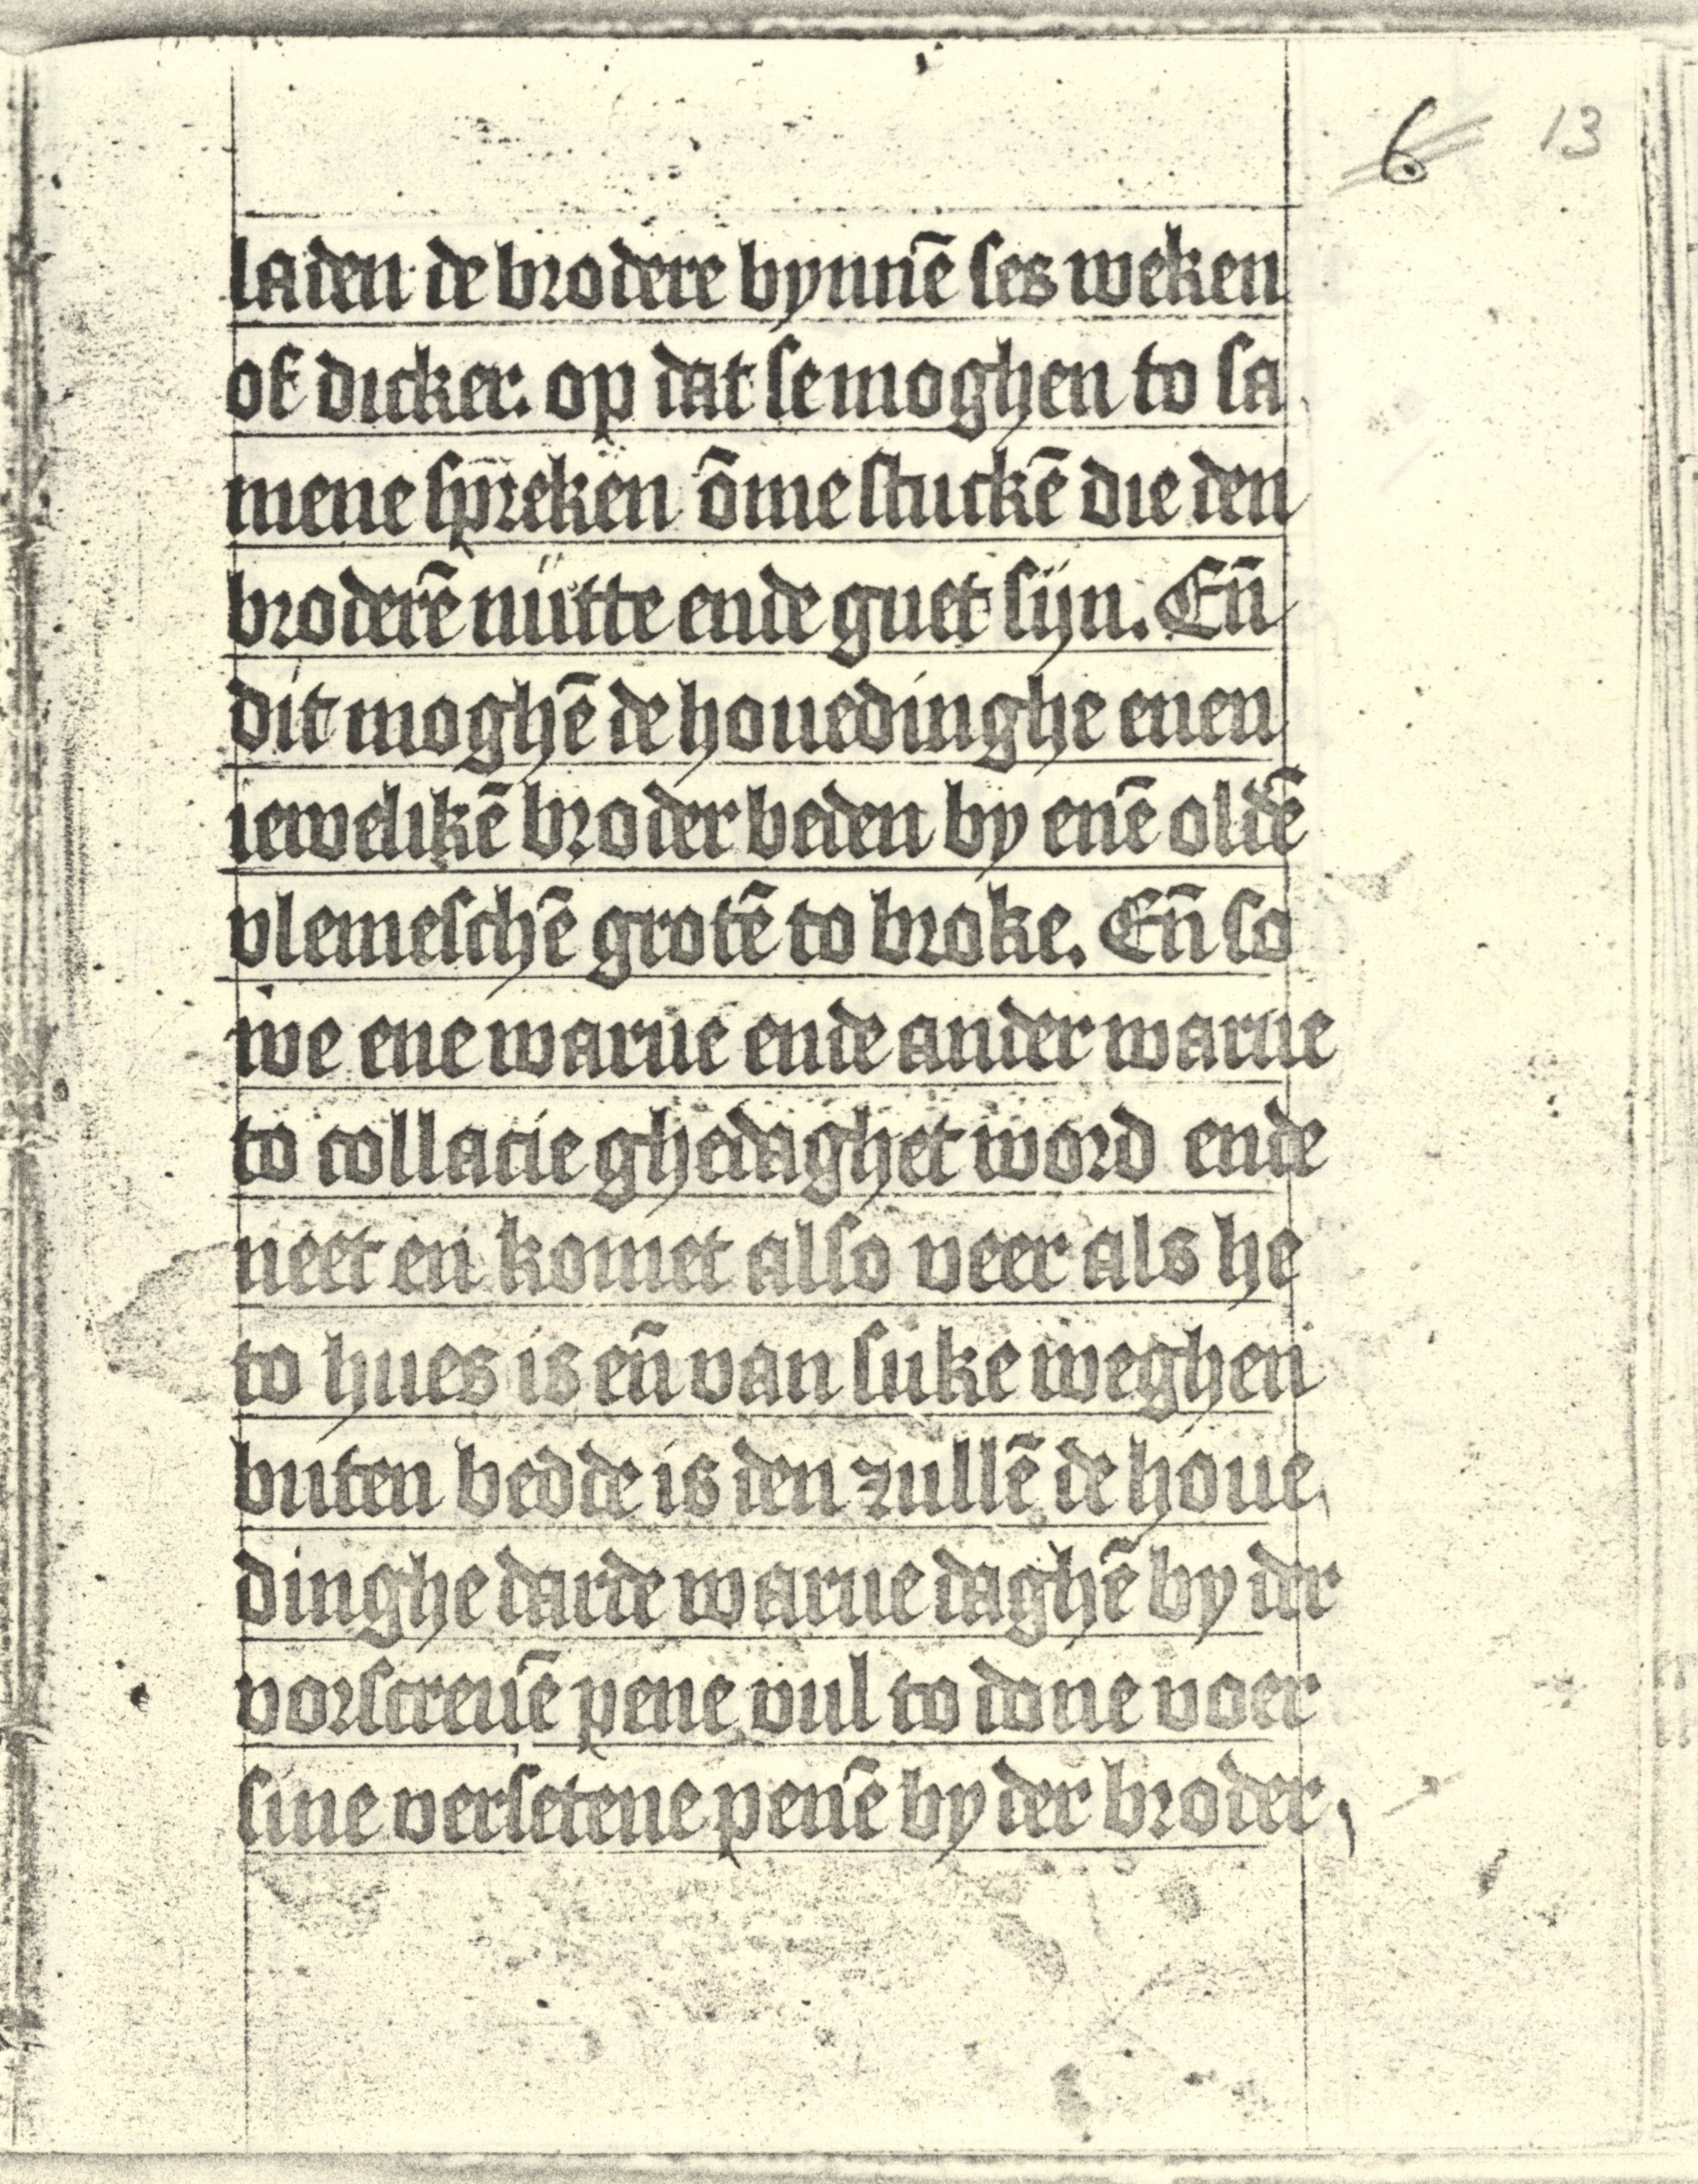 6 13
laden de brodere bynnē ses weken
of dicker. op dat se moghen to sa
mene spreken ōme stuckē die den
broderē nutte ende guet sijn. Eñ
dit moghē de houedinghe enen
iewelikē broder beden by enē oldē
vlemeschē grotē to broke. Eñ so
we ene warue ende ander warue
to collacie ghedaghet word ende
neet en komet also veer als he
to hues is eñ van suke weghen
buten bedde is den zullē de houe
dinghe darde warue daghē by der
vorscreuē pene vul to done voer
sine versetene penē by der broder,